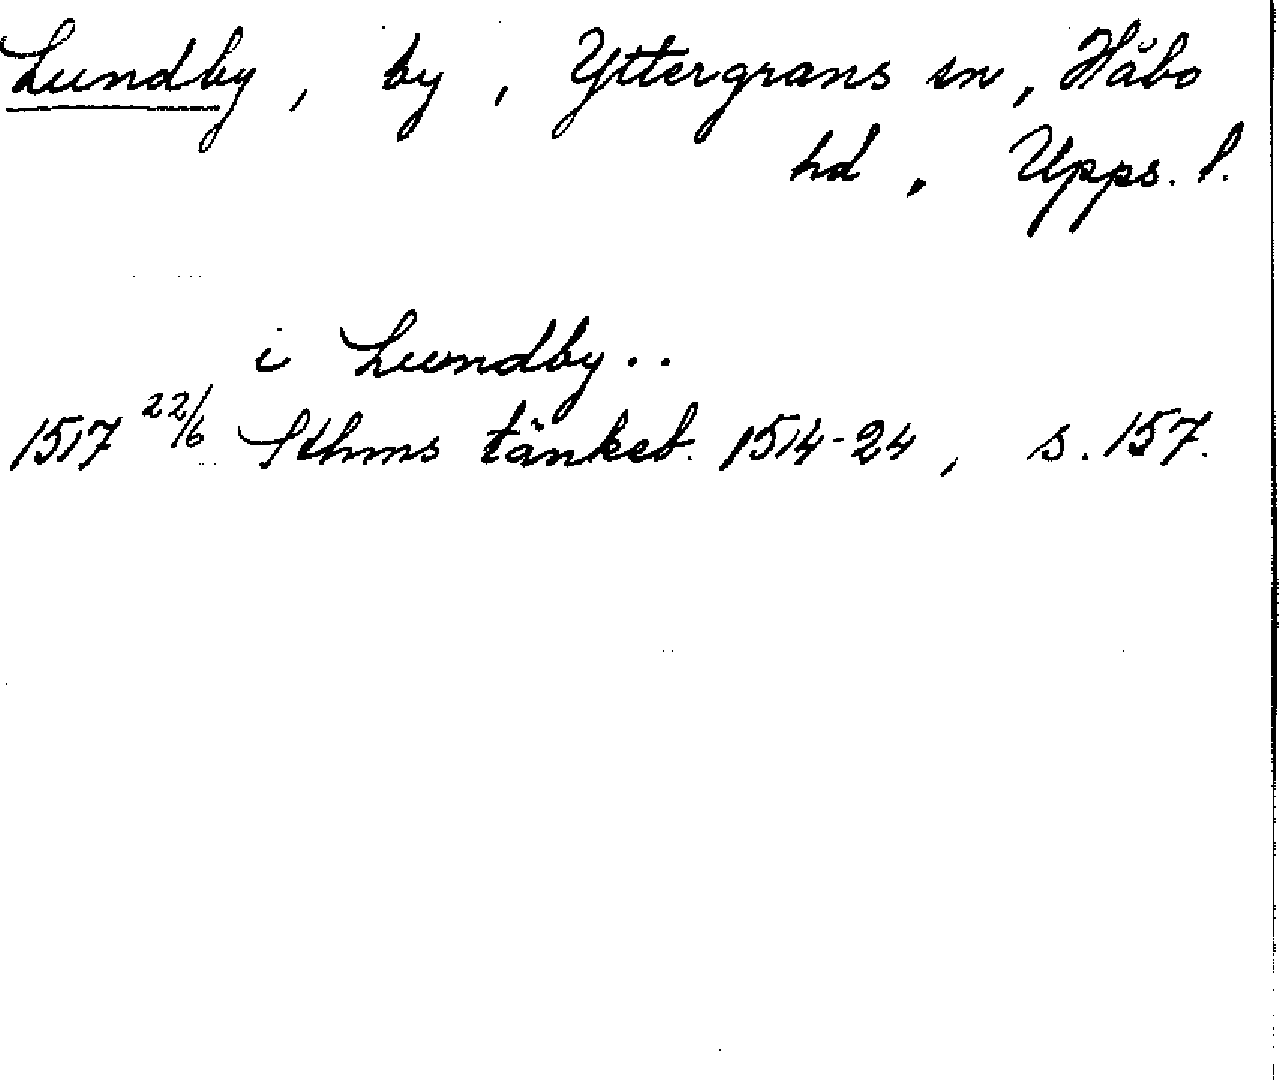 Lundby, by, Yttergrans sn, Håbo
hd, Upps. l.
i Lundby..
1517 22/6 Sthms tänkeb. 1514-24, s. 157.